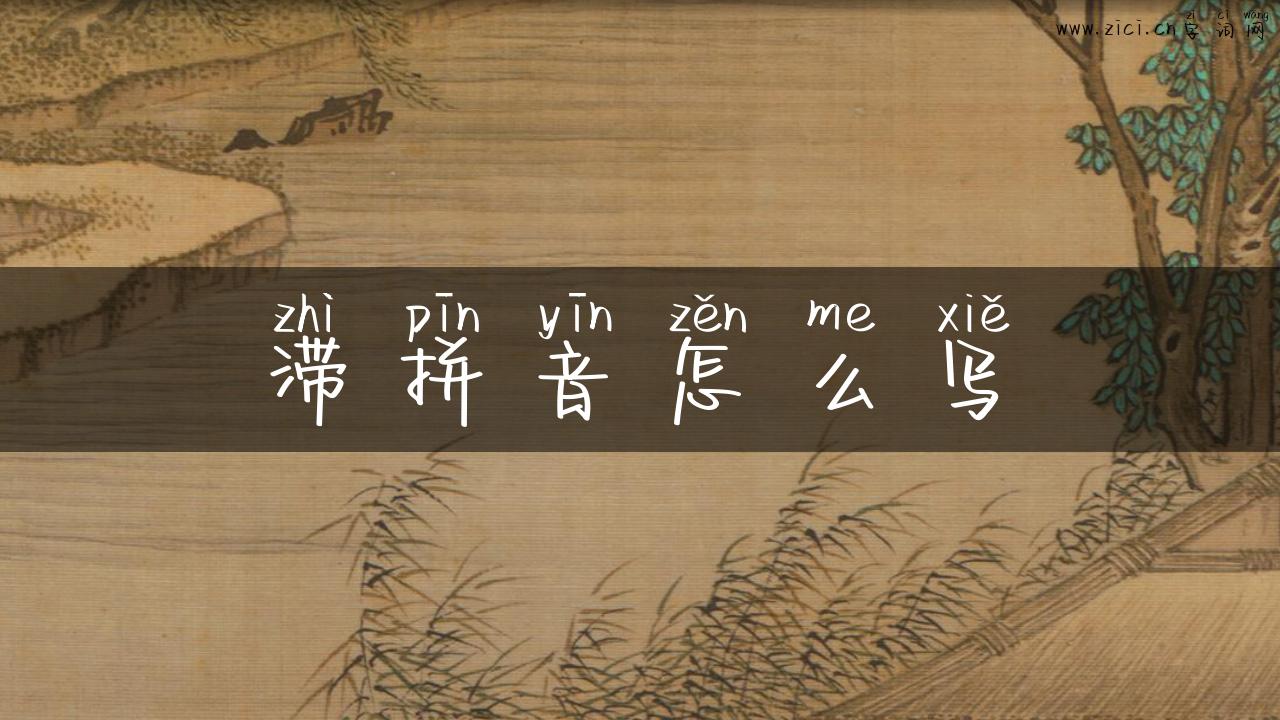 zì cí wǎng
www.zici.cn字词网
zhì pīn yīn zěn me xiě
滞拼音怎么写